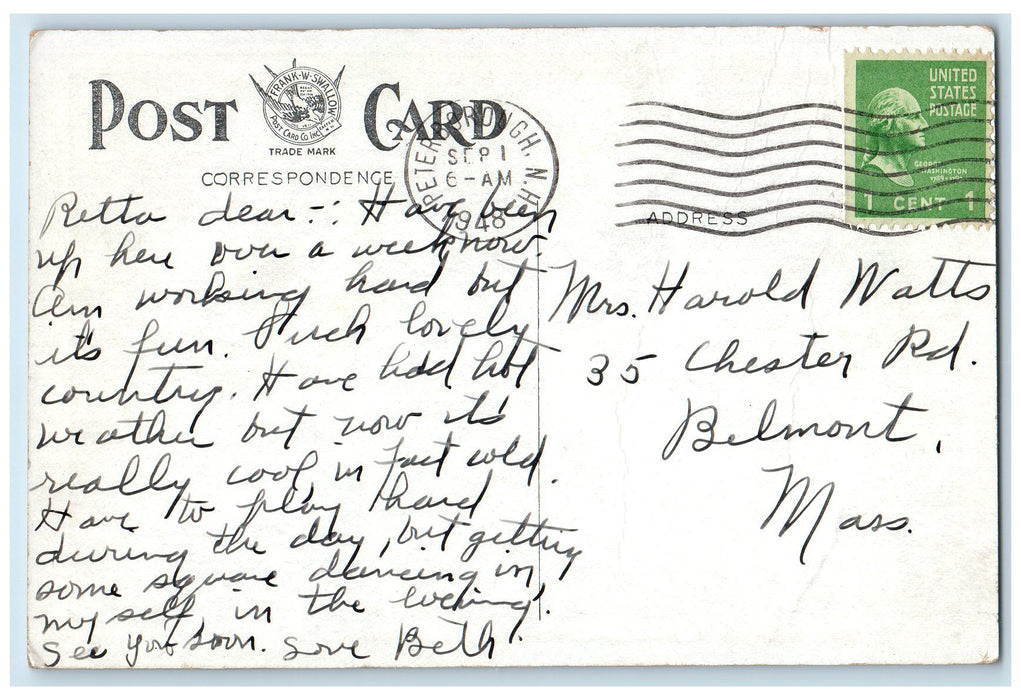 POST CARD
FRANK-W-SWALLOW
POST CARD CO INC
TRADE MARK
CORRESPONDENCE
PETERBOROUGH, N.H.
SEP 1
6-AM
1948
UNITED
STATES
POSTAGE
GEORGE
WASHINGTON
1 CENT 1
ADDRESS
Retta dear -: Have been
up here over a week now.
Am working hard but
it's fun. Such lovely
country. Have had hot
weather but now it's
really cool in fact cold.
Have to play hard
during the day, but getting
some square dancing in
my self in the evening.
See you soon. Love Beth.
Mrs. Harold Watts
35 Chester Rd.
Belmont,
Mass.